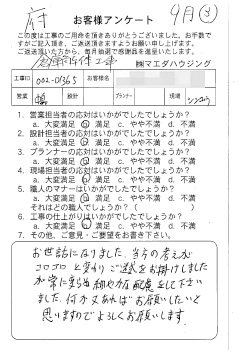 府
9月(3)
お客様アンケート
この度は工事のご用命を頂きありがとうございました。お手数で
すがご記入頂き、ご返送頂きますようお願い申し上げます。
ご返送頂いた方から、毎月抽選で感謝品を進呈いたします。
㈱マエダハウジング
工事ID 002-01365 お客様名
営業 設計 プランナー 現場
1. 営業担当者の応対はいかがでしたでしょうか?
a. 大変満足 b. 満足 c. やや不満 d. 不満
2. 設計担当者の応対はいかがでしたでしょうか?
a. 大変満足 b. 満足 c. やや不満 d. 不満
3. プランナーの応対はいかがでしたでしょうか?
a. 大変満足 b. 満足 c. やや不満 d. 不満
4. 現場担当者の応対はいかがでしたでしょうか?
a. 大変満足 b. 満足 c. やや不満 d. 不満
5. 職人のマナーはいかがでしたでしょうか?
a. 大変満足 b. 満足 c. やや不満 d. 不満
それはどの職人でしょうか?( )
6. 工事の仕上がりはいかがでしたでしょうか?
a. 大変満足 b. 満足 c. やや不満 d. 不満
7. その他、ご意見・ご要望をお書き下さい。
お世話になりました。当方の考えが
コロコロと変わりご迷惑をお掛けしました
が常に
細やかな配慮をして下さい
ました。何か又あればお願いしたいと
思いますのでよろしくお願いします。